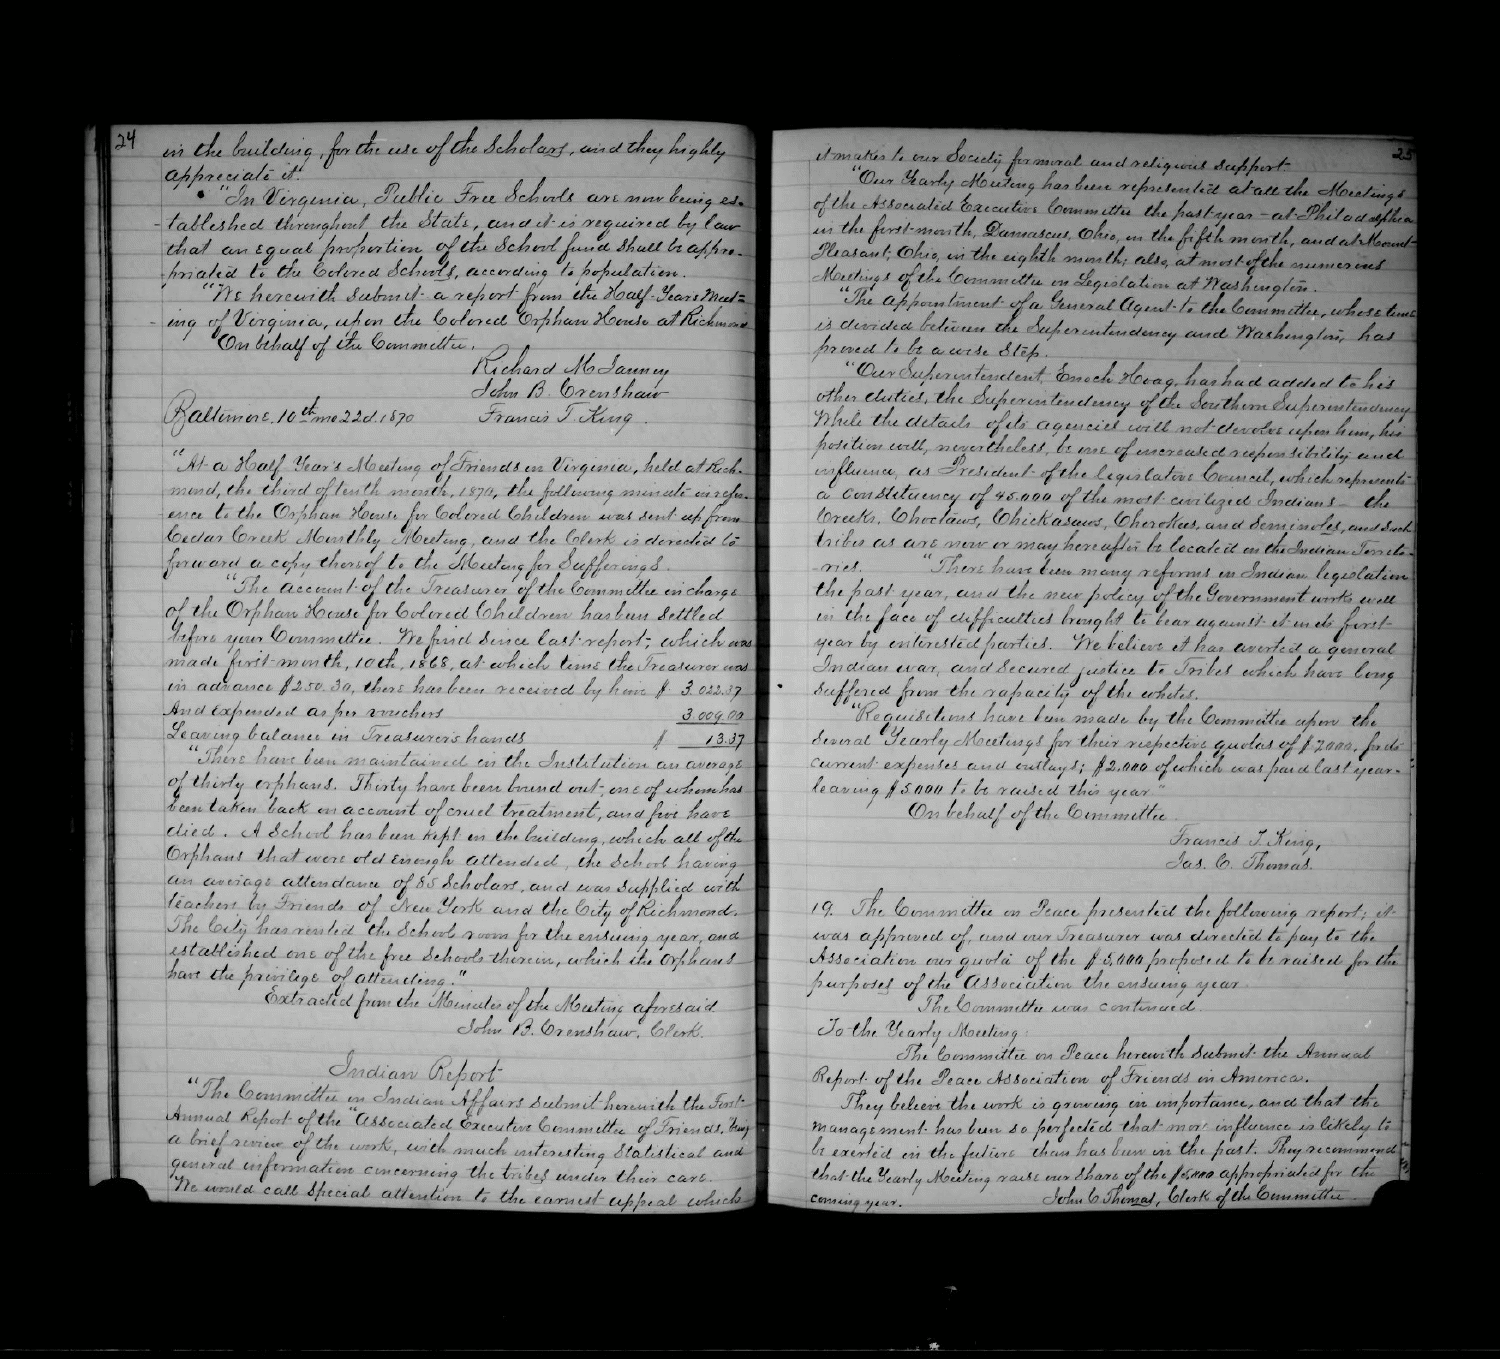 24
in the building, for the use of the Scholars, and they highly
appreciate it."
"In Virginia, Public Free Schools are now being es-
tablished throughout the State, and it is required by law
that an equal proportion of the School fund shall be appro-
priated to the Colored Schools, according to population.
"We herewith submit a report from the Half-Years Meet-
ing of Virginia, upon the Colored Orphan House at Richmond
On behalf of the Committee.
Richard M Janney
John B. Crenshaw
Baltimore, 10th mo 22d. 1870 Francis T. King.
"At a Half Year's Meeting of Friends in Virginia, held at Rich-
mond, the third of tenth month, 1870, the following minute in refer-
ence to the Orphan House for Colored Children was sent up from
Cedar Creek Monthly Meeting, and the Clerk is directed to
forward a copy thereof to the Meeting for Sufferings.
"The account of the Treasurer of the Committee in charge
of the Orphan House for Colored Children has been settled
before your Committee. We find since last report, which was
made first-month, 10th, 1868, at which time the Treasurer was
in advance $250.30, there has been received by him $ 3.022.37
And expended as per vouchers 3.009.00
Leaving balance in Treasurer's hands $ 13.37
"There have been maintained in the Institution an average
of thirty orphans. Thirty have been bound out, one of whom has
been taken back on account of cruel treatment, and five have
died. A School has been kept in the building, which all of the
Orphans that were old enough attended, the School having
an average attendance of 85 Scholars, and was supplied with
teachers by Friends of New York and the City of Richmond.
The City has rented the School room for the ensuing year, and
established one of the free Schools therein, which the Orphans
have the privilege of attending."
Extracted from the Minutes of the Meeting aforesaid
John B. Crenshaw, Clerk.
Indian Report
"The Committee on Indian Affairs submit herewith the First
Annual Report of the "Associated Executive Committee of Friends," being
a brief review of the work, with much interesting Statistical and
general information concerning the tribes under their care.
We would call special attention to the earnest appeal which
25
it makes to our Society for moral and religious support.
"Our Yearly Meeting has been represented at all the Meetings
of the Associated Executive Committee the past year - at Philadelphia
in the first-month, Damascus, Ohio, in the fifth month, and at Mount
Pleasant, Ohio, in the eighth month; also, at most of the numerous
Meetings of the Committee on Legislation at Washington.
"The appointment of a General Agent to the Committee, whose time
is divided between the Superintendency and Washington, has
proved to be a wise step.
"Our Superintendent, Enoch Hoag, has had added to his
other duties, the Superintendency of the Southern Superintendency
While the details of its agencies will not devolve upon him, his
position will, nevertheless, be one of increased responsibility and
influence, as President of the legislative Council, which represents
a constituency of 45.000 of the most civilized Indians - the
Creeks, Choctaws, Chickasaws, Cherokees, and Seminoles, and such
tribes as are now or may hereafter be located in the Indian Territo-
-ries. "There have been many reforms in Indian legislation
the past year, and the new policy of the Government works well
in the face of difficulties brought to bear against it in its first
year by interested parties. We believe it has averted a general
Indian war, and secured justice to Tribes which have long
suffered from the rapacity of the whites.
"Requisitions have been made by the Committee upon the
several Yearly Meetings for their respective quotas of $7.000, for its
current expenses and outlays; $2.000 of which was paid last year-
leaving $5.000 to be raised this year."
On behalf of the Committee
Francis T. King,
Jas. C. Thomas.
19. The Committee on Peace presented the following report; it
was approved of, and our Treasurer was directed to pay to the
Association our quota of the $5,000 proposed to be raised for the
purposes of the Association the ensuing year.
The Committee was continued.
To the Yearly Meeting:
The Committee on Peace herewith submit the Annual
Report of the Peace Association of Friends in America.
They believe the work is growing in importance, and that the
management has been so perfected that more influence is likely to
be exerted in the future than has been in the past. They recommend
that the Yearly Meeting raise our share of the $5,000 appropriated for the
coming year. John C Thomas, Clerk of the Committee